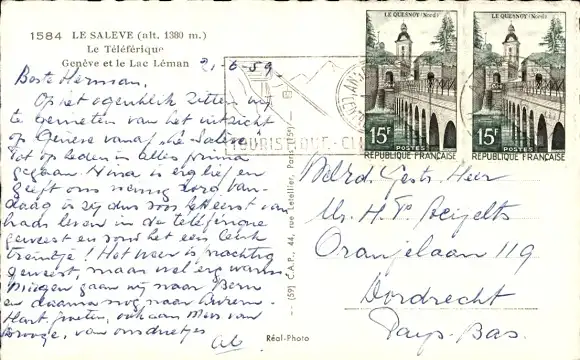 1584 LE SALEVE (alt. 1380 m.)
Le Téléférique
Genève et le Lac Léman
21-6-59
Beste Herman,
Op het ogenblik zitten wij
te genieten van het uitzicht
op Genève vanaf "Le Salève"
Tot op heden is alles prima
gegaan. is erg lief en
geeft ons weinig zorg. Van-
daag is zij dus voor het eerst van
haar leven in de téléférique
geweest en vond het een leuk
treintje! Het weer is prachtig
geweest, maar wel erg warm
Morgen gaan wij naar Bern
en daarna nog naar
Hart. groeten, ook aan Mevr. van
van ons drietjes
LE QUESNOY (Nord)
15F
POSTES
REPUBLIQUE FRANÇAISE
LE QUESNOY (Nord)
15F
POSTES
REPUBLIQUE FRANÇAISE
TOURISTIQUE
(59) C.A.P., 44, rue Letellier, Paris (15e)
Réal-Photo
Weled. Gestr. Heer
Mr. H. P.
Oranjelaan 119
Dordrecht
Pays-Bas.